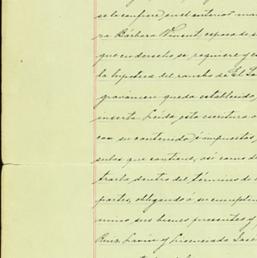 se la confiere, en el anterior man
ra Bárbara Vincent, esposa de
que en derecho se requiere y
la hipoteca del rancho de "El
gravámen queda establecido,
inserta. Leída esta escritura á
con su contenido é impuestos
sules que contiene, así como de
tracto dentro del término de
partes, obligando á su cumplim
mino sus bienes presentes y
Ruiz, Lavin y Licenciado